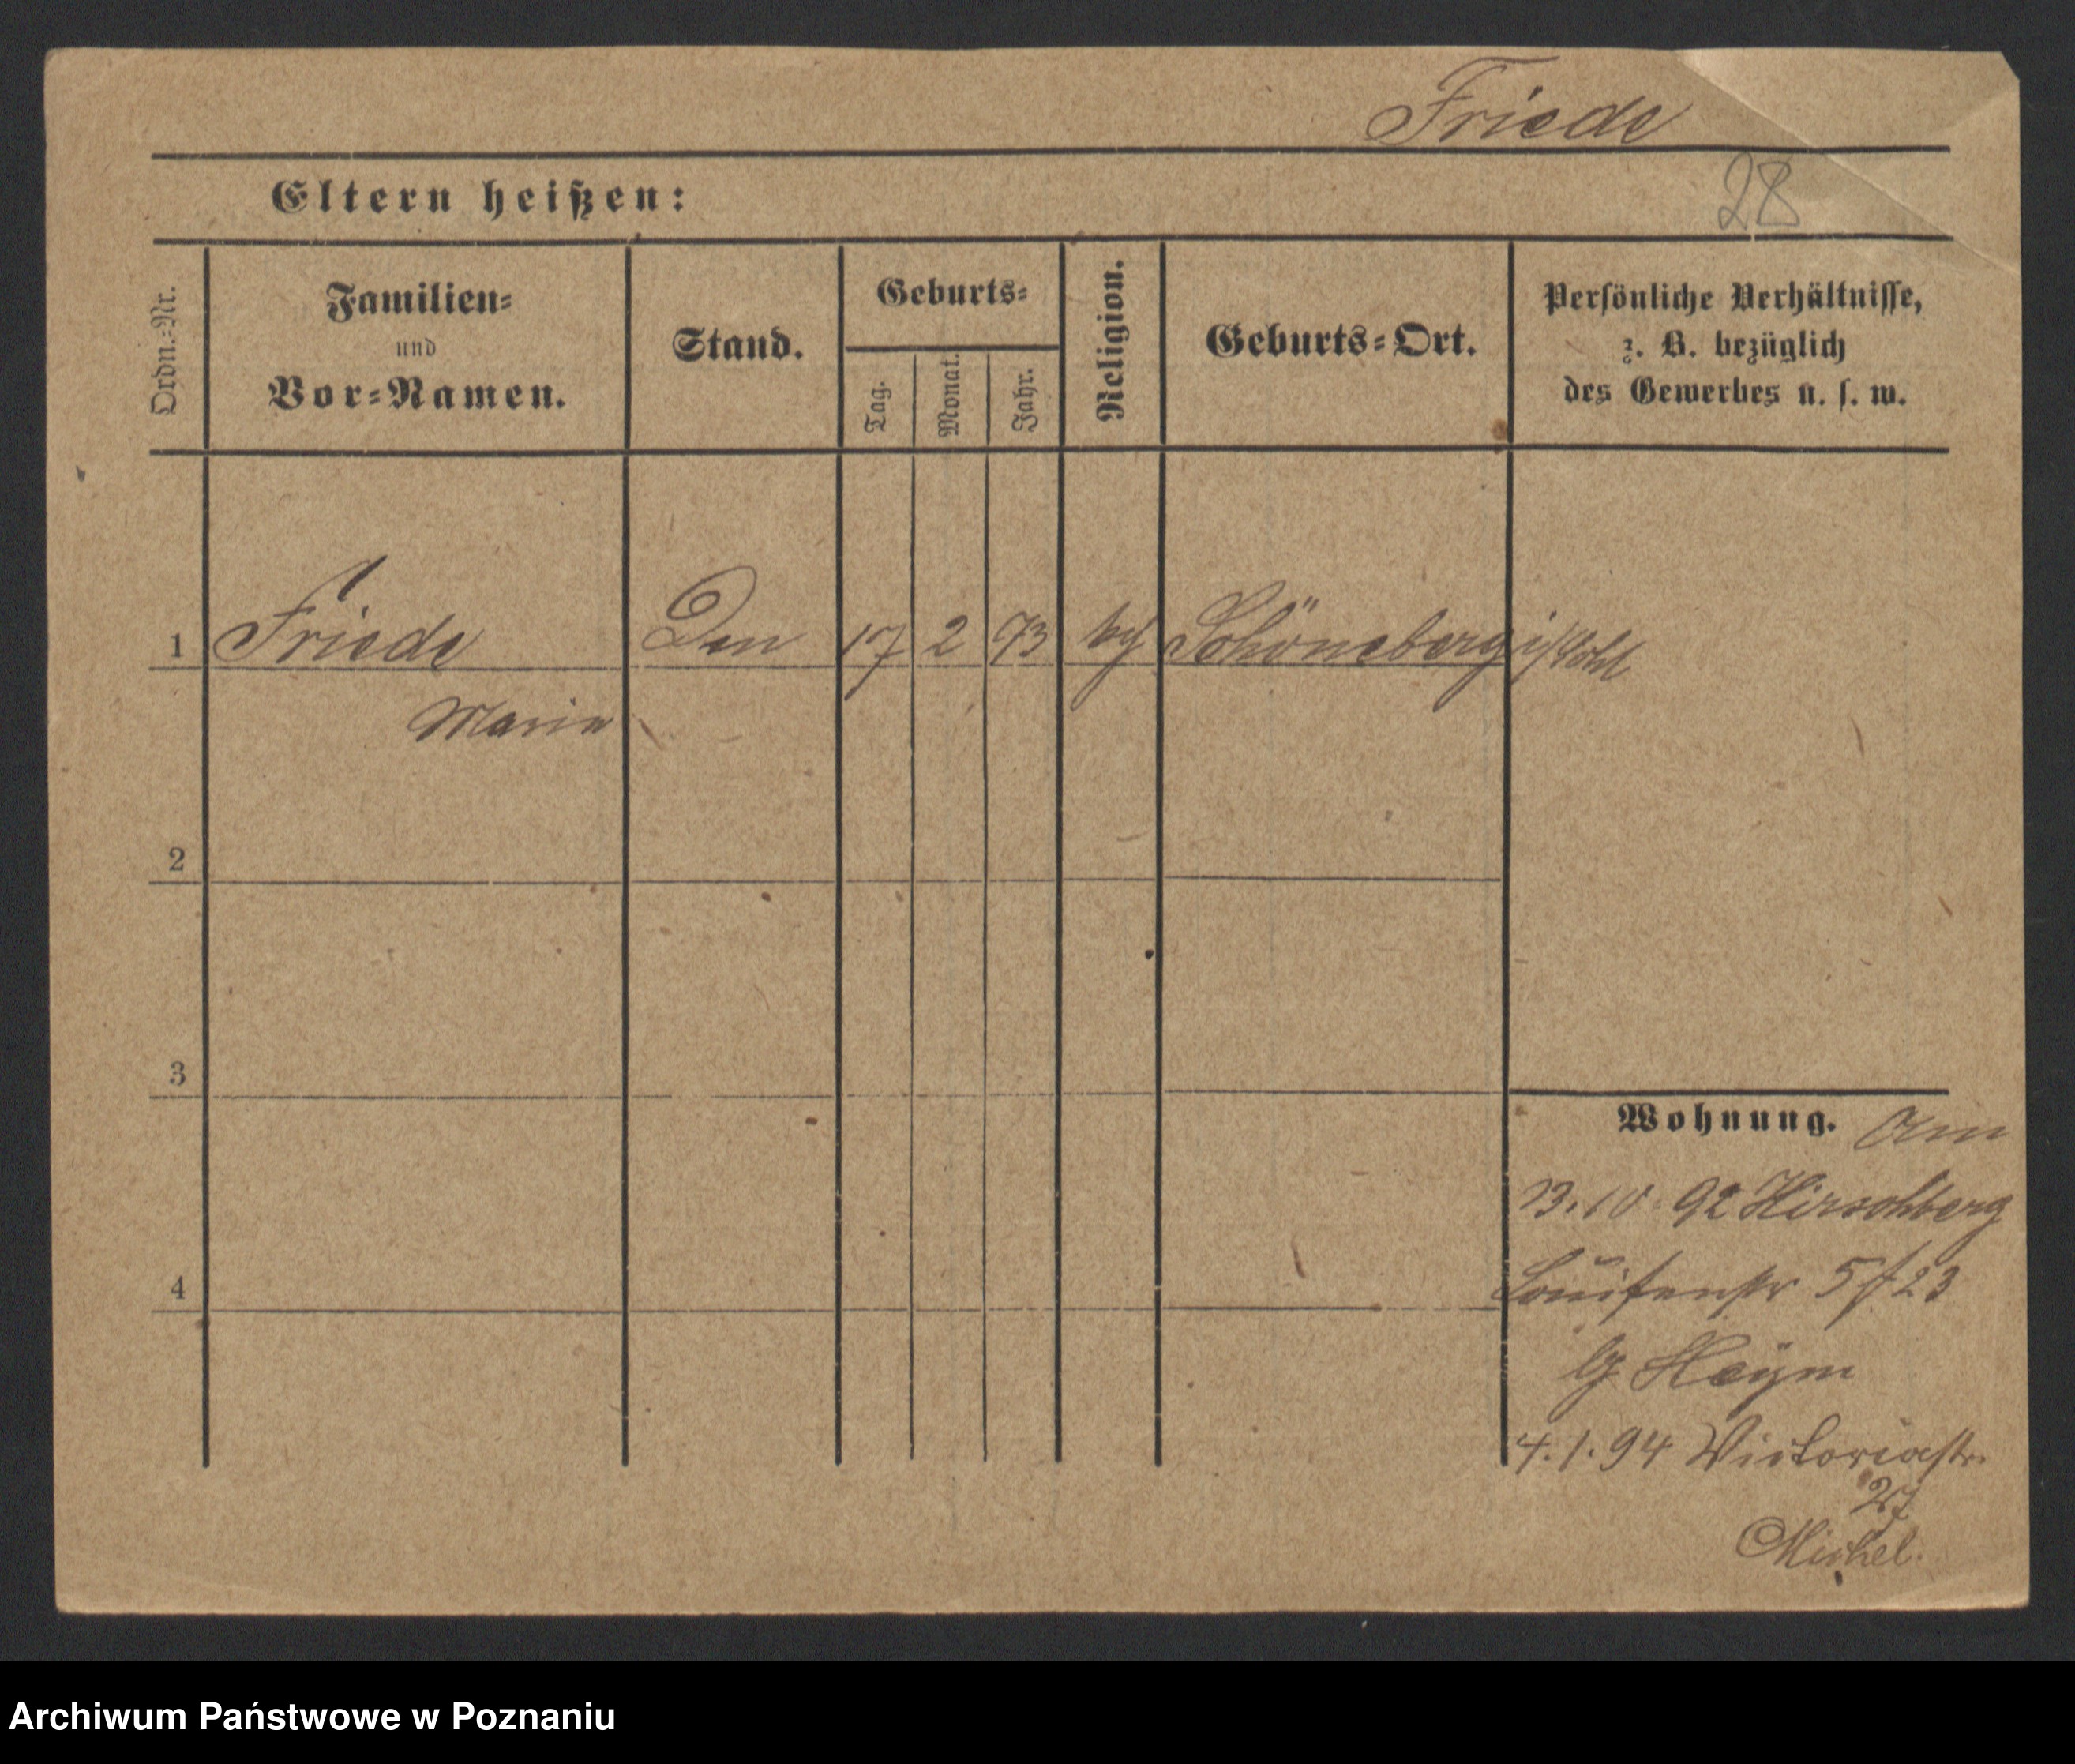 Friede
Eltern heißen:
28
Ordn.-Nr.
Familien-
und
Vor-Namen.
Stand.
Geburts-
Tag.
Monat.
Jahr.
Religion.
Geburts-Ort.
Persönliche Verhältnisse,
z. B. bezüglich
des Gewerbes u. s. w.
1 Friede 17 2 73 Schöneberg
Marie
2
3
4
Wohnung. Am
10. 92 Hirschberg
Louisenstr 5 f 23
Heym
4. 1. 94 Victoriastr.
27
Michel.
Archiwum Państwowe w Poznaniu